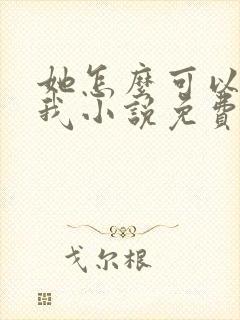 她怎麼可以
我小說免費
戈尔根